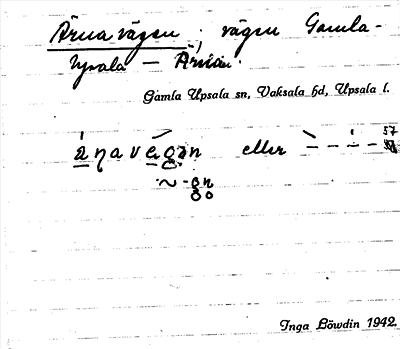 Ärnavägen, vägen Gamla-
Upsala — Ärnan.
Gamla Upsala sn, Vaksala hd, Upsala l.
eller
57
Inga Löwdin 1942.